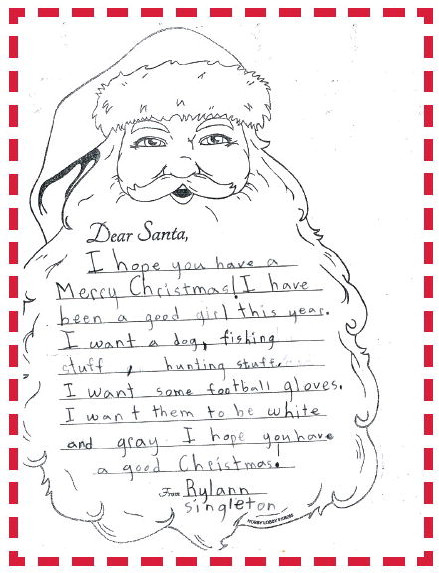 Dear Santa,
I hope you have a
Merry Christmas! I have
been a good girl this year.
I want a dog, fishing
stuff, hunting stuff.
I want some football gloves.
I want them to be white
and gray. I hope you have
a good Christmas.
From Rylann
Singleton